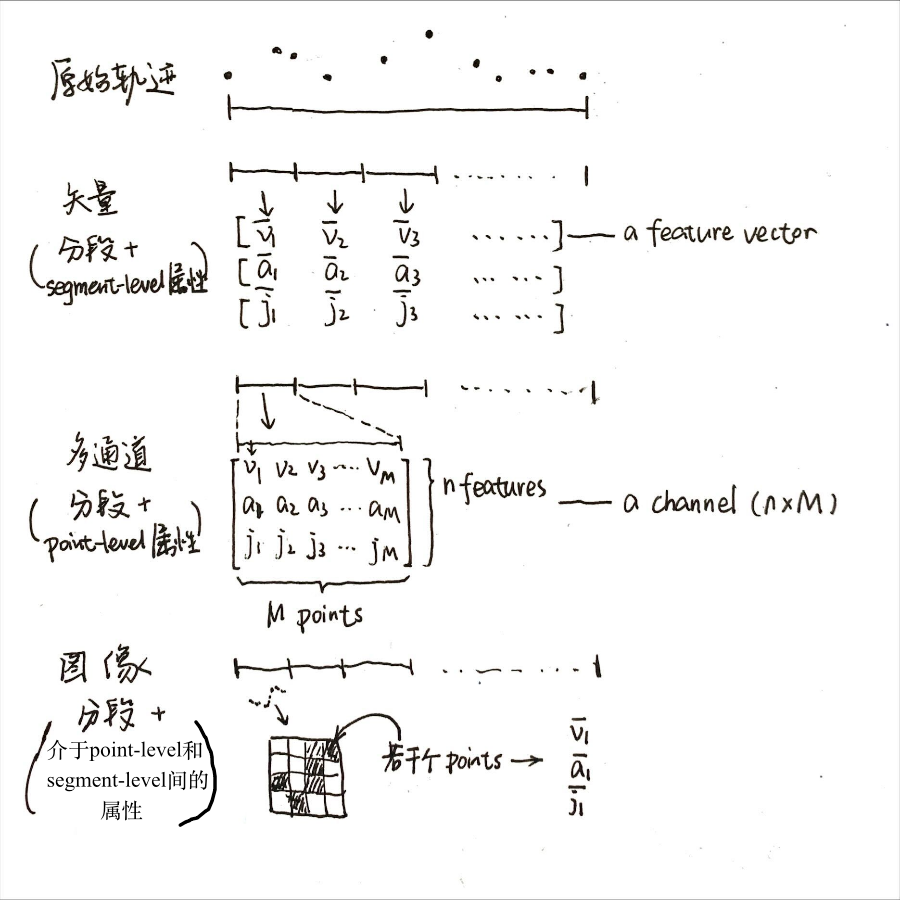 原始轨迹
矢量
(分段 +
segment-level属性)
[v̅₁ v̅₂ v̅₃ ⋯⋯] — a feature vector
[a̅₁ a̅₂ a̅₃ ⋯⋯]
[j̅₁ j̅₂ j̅₃ ⋯⋯]
多通道
(分段 +
point-level属性)
v₁ v₂ v₃ ⋯ v_M
a₁ a₂ a₃ ⋯ a_M
j₁ j₂ j₃ ⋯ j_M
n features — a channel (n×M)
M points
图像
分段 +
(介于point-level和
segment-level间的
属性)
若干个points →
v̅₁
a̅₁
j̅₁